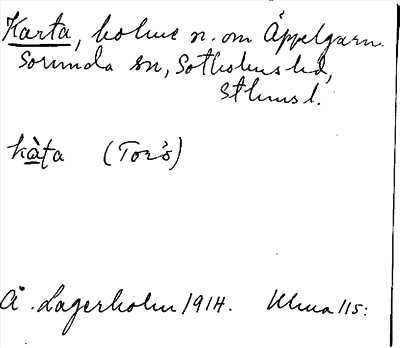 Karta, holme n. om Äppelgarn.
Sorunda sn, Sotholms hd,
Sthms l.
kàʈa (Torö)
Å. Lagerholm 1914. Uhma 115: